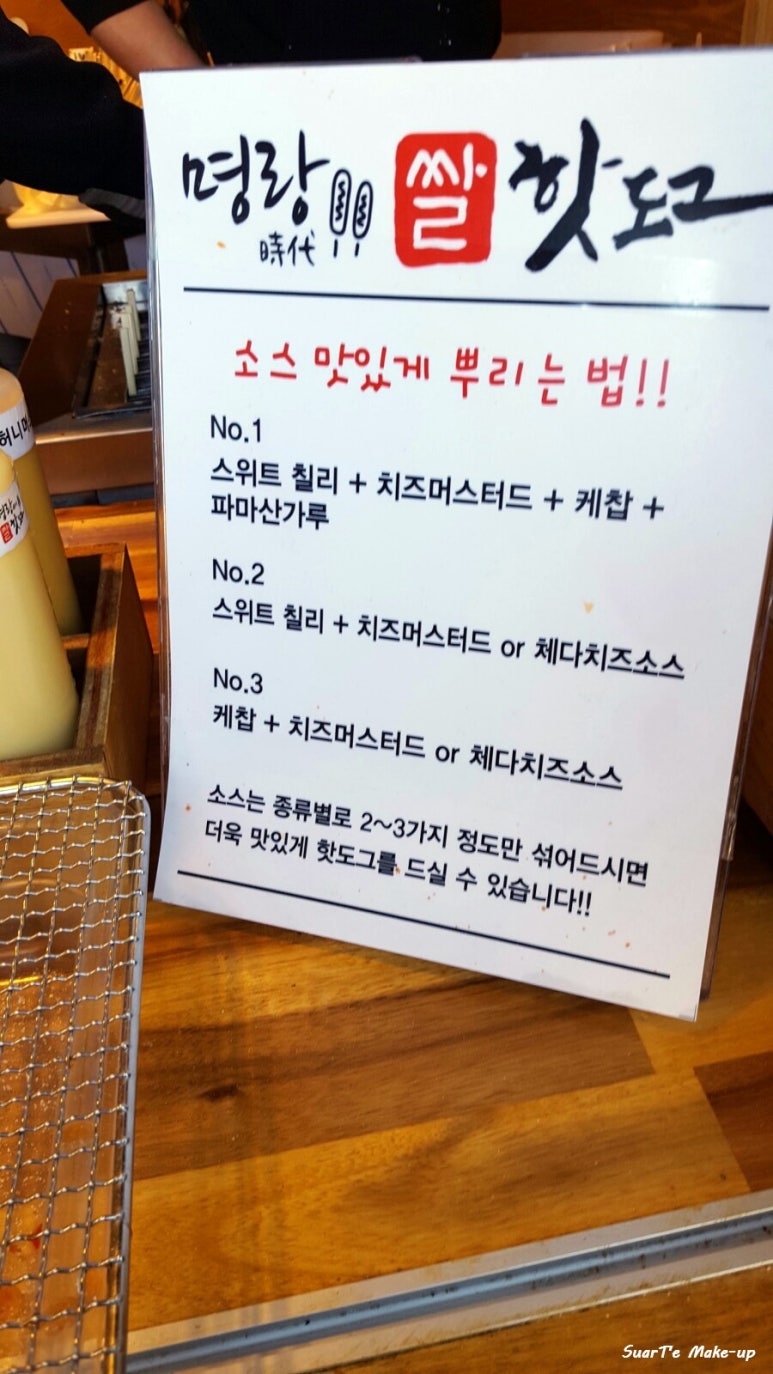 명랑 쌀 핫도그
時代
소스 맛있게 뿌리는 법!!
No.1
스위트 칠리 + 치즈머스터드 + 케찹 +
파마산가루
No.2
스위트 칠리 + 치즈머스터드 or 체다치즈소스
No.3
케찹 + 치즈머스터드 or 체다치즈소스
소스는 종류별로 2~3가지 정도만 섞어드시면
더욱 맛있게 핫도그를 드실 수 있습니다!!
허니머
명랑
쌀핫도
SuarT'e Make-up